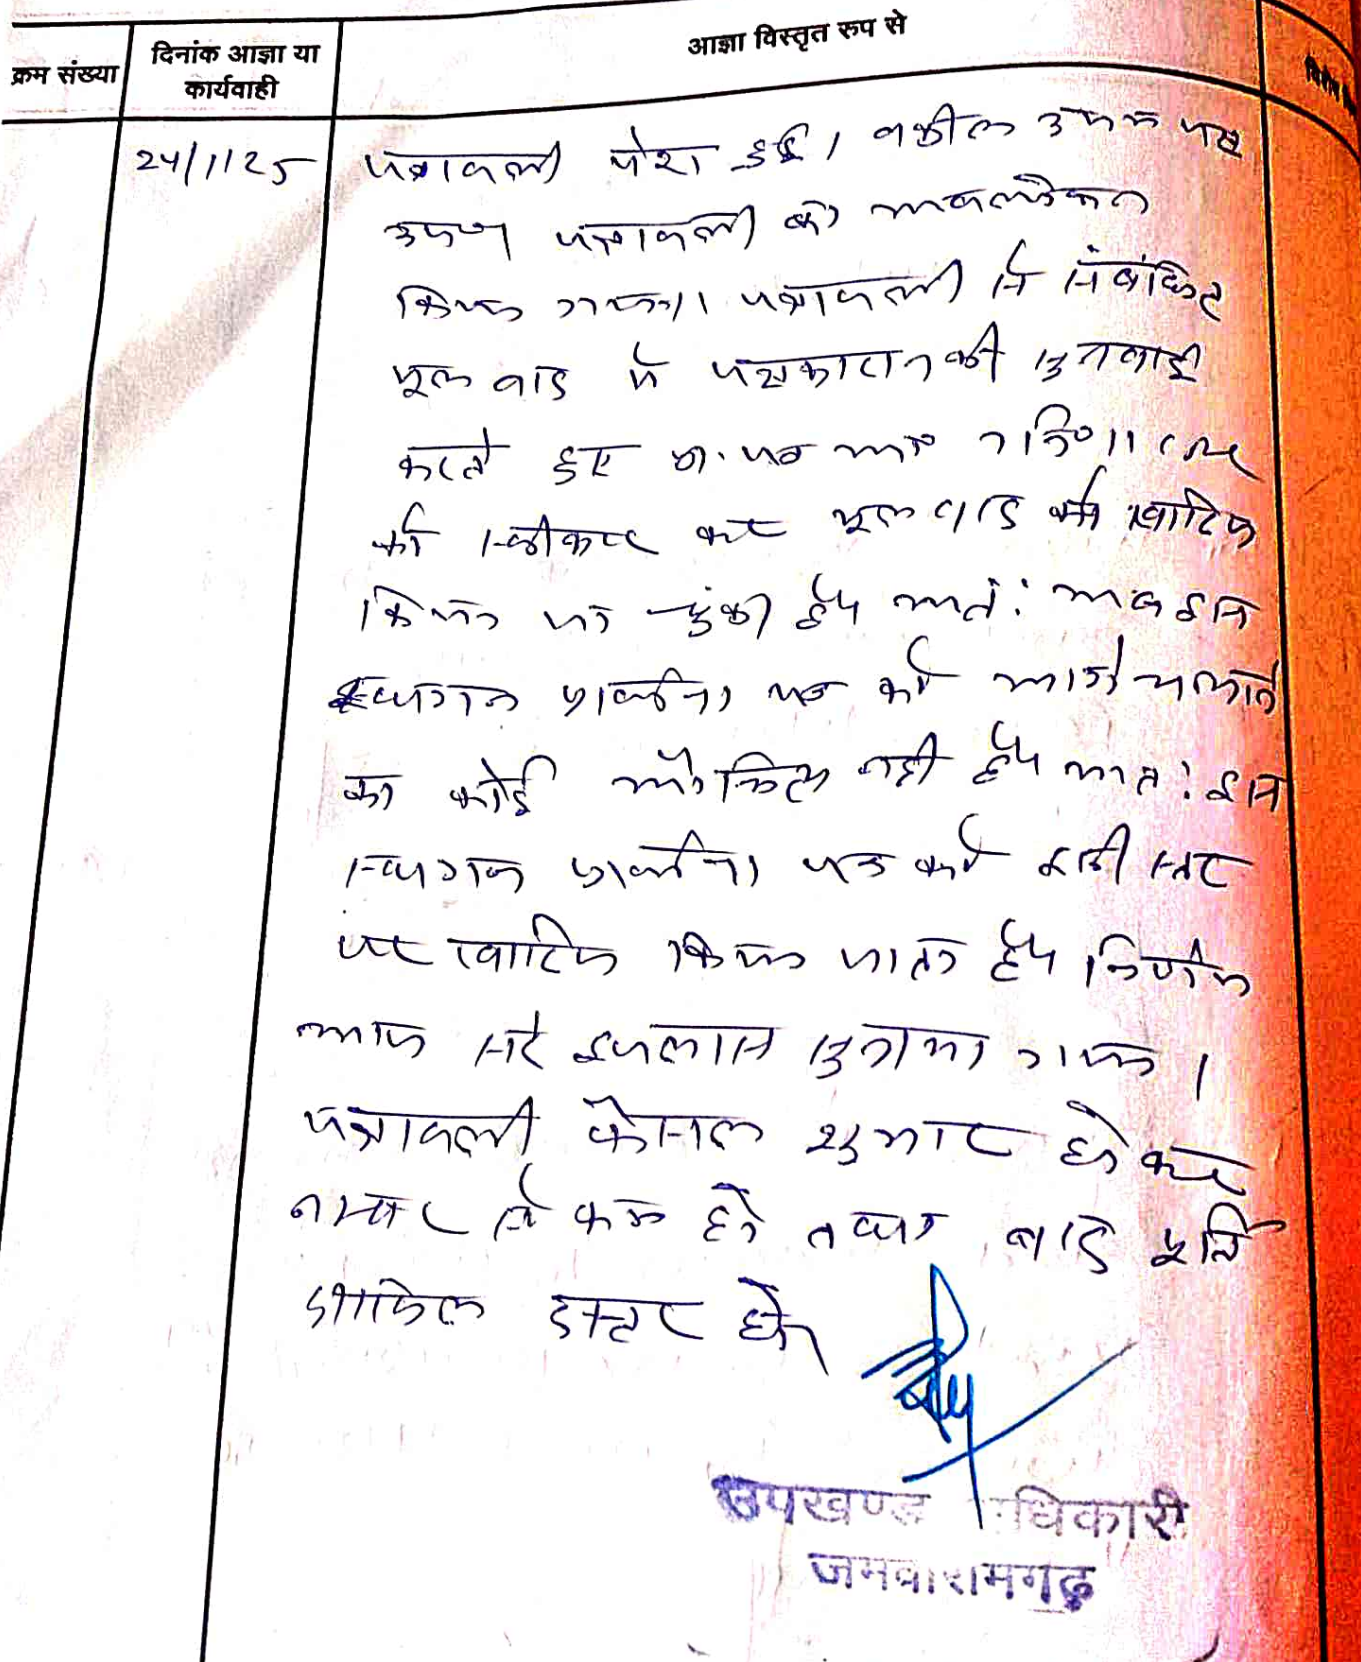 क्रम संख्या
दिनांक आज्ञा या
कार्यवाही
आज्ञा विस्तृत रुप से
24/1/25
पत्रावली पेश हुई। वकील उभय पक्ष
उप० पत्रावली का अवलोकन
किया गया। पत्रावली से संबंधित
मूल वाद में पक्षकारान की सुनवाई
करते हुए प्रा. पत्र
को स्वीकार कर मूल वाद को खारिज
किया जा चुका है। अतः अब इस
स्थगन प्रार्थना पत्र को आगे चलाने
का कोई औचित्य नहीं है। अतः इस
स्थगन प्रार्थना पत्र को इसी स्तर
पर खारिज किया जाता है। निर्णय
आज सरे इजलास सुनाया गया।
पत्रावली फैसल शुमार होकर
नम्बर से कम हो तथा बाद पूर्ति
दाखिल दफ्तर हो।
उपखण्ड अधिकारी
जमवारामगढ़